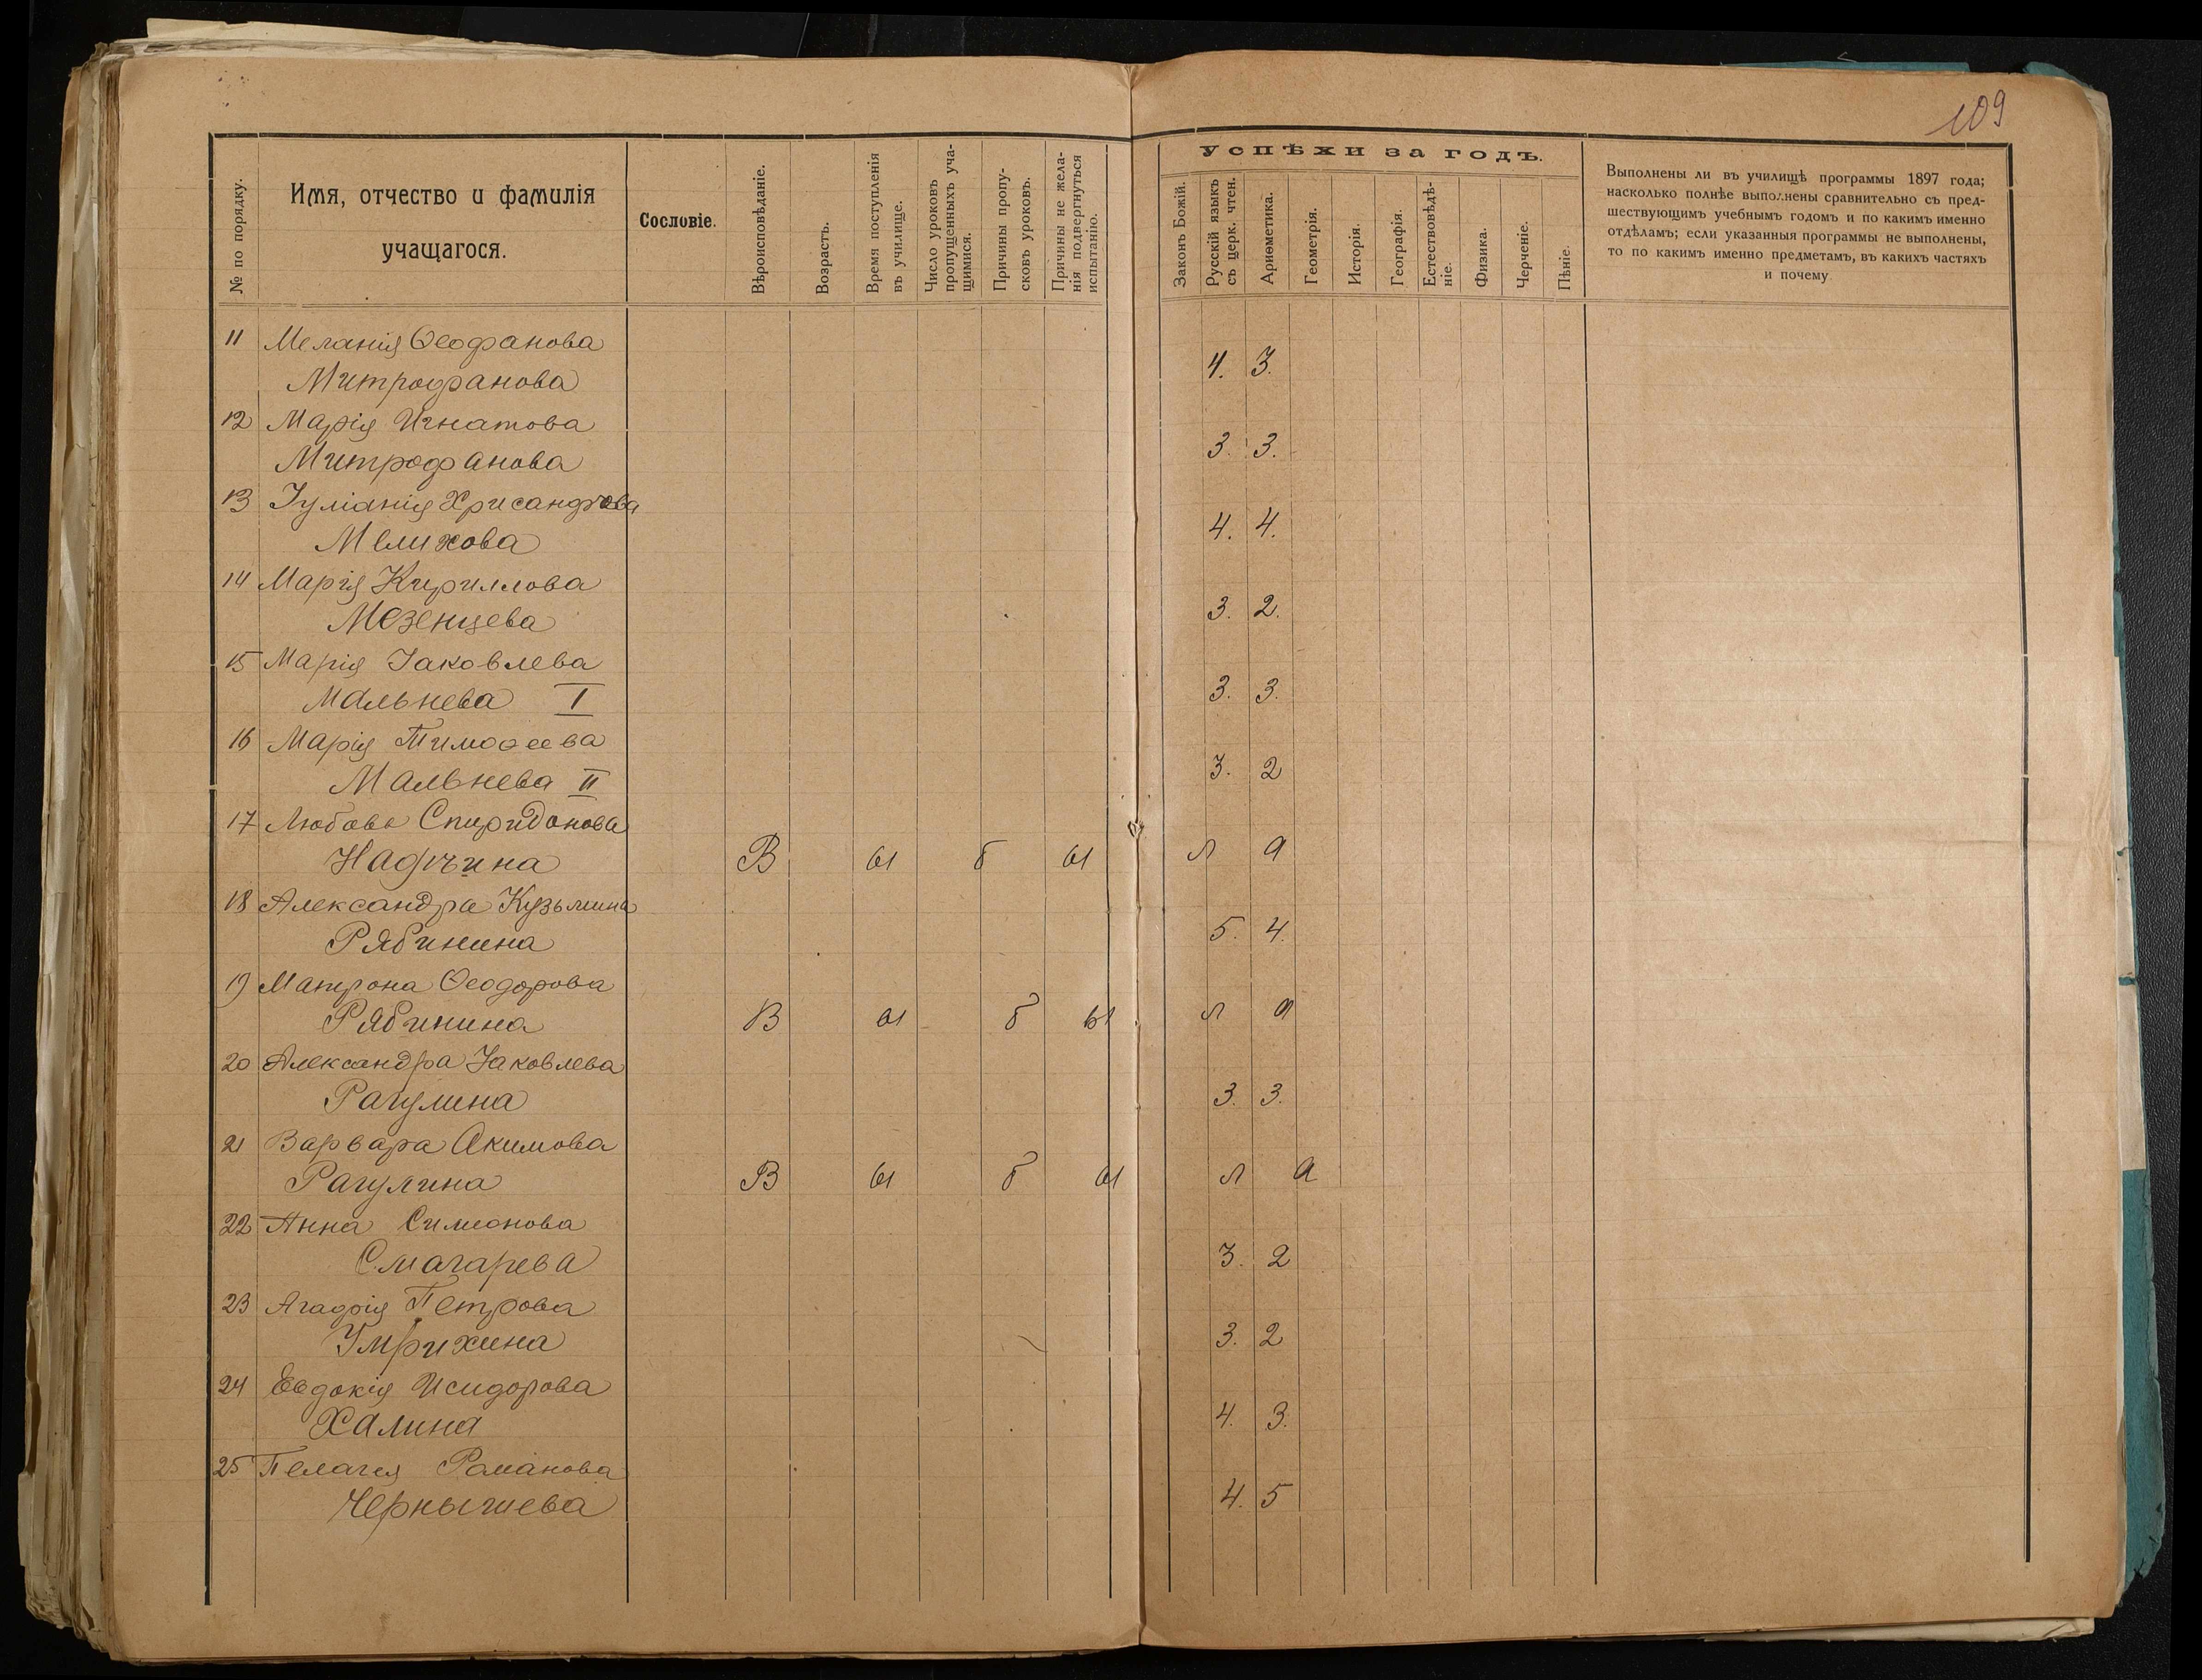 109
№ по порядку.
Имя, отчество и фамилія
учащагося.
Сословіе.
Вѣроисповѣданіе.
Возрастъ.
Время поступленія
въ училище.
Число уроковъ
пропущенныхъ уча-
щимися.
Причины пропу-
сковъ уроковъ.
Причины не жела-
нія подвергнуться
испытанію.
Успѣхи за годъ.
Законъ Божій.
Русскій языкъ
съ церк. чтен.
Ариѳметика.
Геометрія.
Исторія.
Географія.
Естествовѣдѣ-
ніе.
Физика.
Черченіе.
Пѣніе.
Выполнены ли въ училищѣ программы 1897 года;
насколько полнѣе выполнены сравнительно съ пред-
шествующимъ учебнымъ годомъ и по какимъ именно
отдѣламъ; если указанныя программы не выполнены,
то по какимъ именно предметамъ, въ какихъ частяхъ
и почему.
11 Меланія Ѳеофанова
Митрофанова 4. 3.
12 Марія Игнатова
Митрофанова 3. 3.
13 Іуліанія Хрисандрова
Мелихова 4. 4.
14 Марія Кириллова
Мезенцева 3. 2.
15 Марія Іаковлева
Мальнева I 3. 3.
16 Марія Тимоѳеева
Мальнева II 3. 2
17 Любовь Спиридонова
В ы б ы л а
18 Александра Кузьмина
Рябинина 5. 4.
19 Матрона Ѳеодорова
Рябинина В ы б ы л а
20 Александра Іаковлева
Рагулина 3. 3.
21 Варвара Акимова
Рагулина В ы б ы л а
22 Анна Симонова
Смагарева 3. 2
23 Агафія Петрова
Умрихина 3. 2
24 Евдокія Исидорова
Халина 4. 3.
25 Пелагея Романова
Чернышева 4. 5